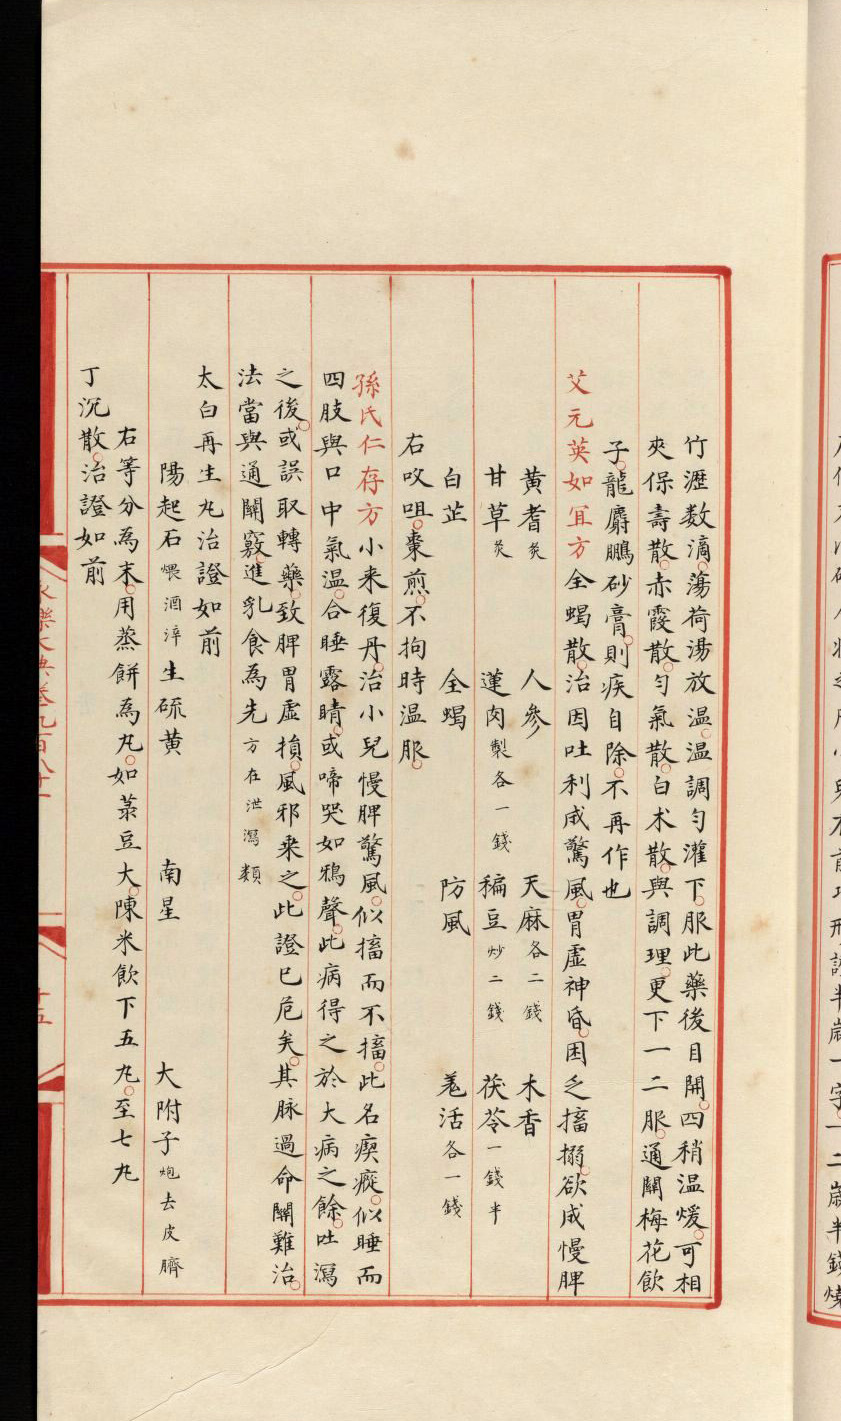 竹瀝数滴蕩荷湯放温温調勻灌下服此藥後目開四稍温煖可相
夾保壽散赤霞散勻氣散白术散與調理更下一二服通關梅花飲
子龍麝鵬砂膏則疾自除不再作也
艾元英如宜方全蝎散治因吐利成驚風胃虛神昏困乏搐搦欲成慢脾
黄耆炙 人參 天麻各二錢 木香
甘草炙 蓮肉製各一錢 稨豆炒二錢 茯苓一錢半
白芷 全蝎 防風 羗活各一錢
右㕮咀棗煎不拘時温服
孫氏仁存方小来復丹治小兒慢脾驚風似搐而不搐此名瘈瘲似睡而
四肢與口中氣温合睡露睛或啼哭如鴉聲此病得之於大病之餘吐瀉
之後或誤取轉藥致脾胃虛損風邪乗之此證已危矣其脉過命關難治
法當與通關竅進乳食為先方在泄瀉類
太白再生丸治證如前
陽起石煨酒淬 生硫黄 南星 大附子炮去皮臍
右等分為末用蒸餅為丸如菉豆大陳米飲下五丸至七丸
丁沉散治證如前
十五